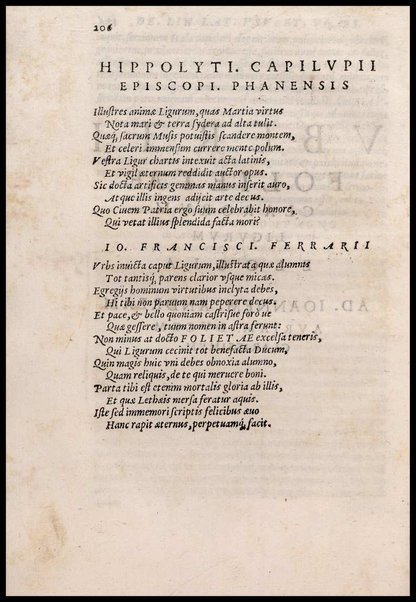 206
HIPPOLYTI. CAPILVPII
EPISCOPI. PHANENSIS
Illustres animæ Ligurum, quas Martia virtus
Nota mari & terra sydera ad alta tulit.
Quæq; sacrum Musis potuistis scandere montem,
Et celeri immensum currere mente polum.
Vestra Ligur chartis intexuit acta latinis,
Et vigil æternum reddidit auctor opus.
Sic docta artificis gemmas manus inserit auro,
Atque illis ingens adijcit arte decus.
Quo Ciuem Patria ergo suum celebrabit honore,
Qui vetat illius splendida facta mori?
IO. FRANCISCI. FERRARII
Vrbs inuicta caput Ligurum, illustrata quæ alumnis
Tot tantisq; parens clarior vsque micas.
Egregijs hominum virtutibus inclyta debes,
Hi tibi non paruum nam peperere decus.
Et pace, & bello quoniam castrisue forò ue
Quæ gessere, tuum nomen in astra ferunt:
Non minus at docto FOLIETAE excelsa teneris,
Qui Ligurum cecinit tot benefacta Ducum,
Quin magis huic vni debes obnoxia alumno,
Quam reliquis, de te qui meruere boni.
Parta tibi est etenim mortalis gloria ab illis,
Et quæ Lethæis mersa feratur aquis.
Iste sed immemori scriptis felicibus æuo
Hanc rapit æternus, perpetuamq; facit.